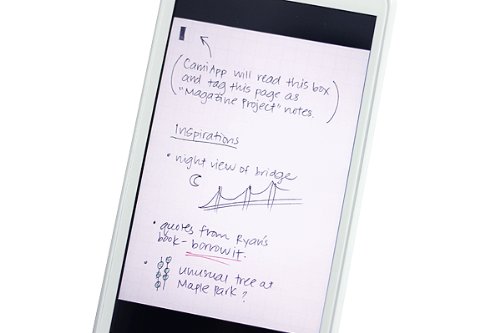 (CamiApp will read this box
and tag this page as
"Magazine Project" notes.)
Inspirations
• night view of bridge
• quotes from Ryan's
book - borrow it.
• unusual tree at
Maple Park?